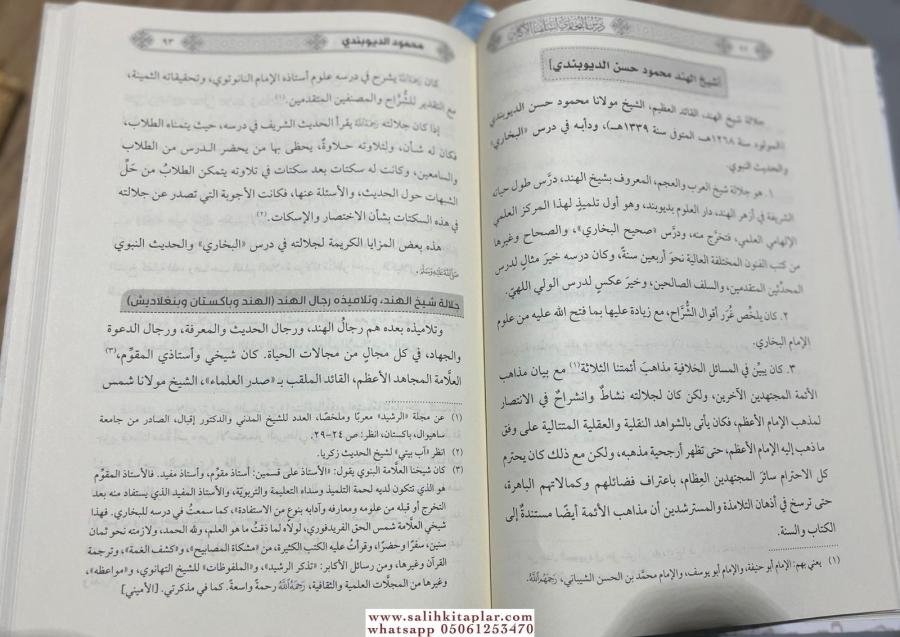 ٩٢
درس البخاري
[شيخ الهند محمود حسن الديوبندي]
جلالة شيخ الهند، القائد العظيم، الشيخ مولانا محمود حسن الديوبندي
(المولود سنة ١٢٦٨هـ، المتوفى سنة ١٣٣٩هـ)، ودأبه في درس «البخاري»
والحديث النبوي.
١. هو جلالة شيخ العرب والعجم، المعروف بشيخ الهند، درَّس طول حياته
الشريفة في أزهر الهند، دار العلوم بديوبند، وهو أول تلميذٍ لهذا المركز العلمي
الإلهامي العلمي، فتخرَّج منه، ودرَّس «صحيح البخاري»، والصحاح وغيرها
من كتب الفنون المختلفة العالية نحوَ أربعين سنةً، وكان درسه خيرَ مثالٍ لدرس
المحدِّثين المتقدمين، والسلف الصالحين، وخيرَ عكسٍ لدرس الولي اللهيّ.
٢. كان يلخِّص غُرَر أقوال الشُّراح، مع زيادة عليها بما فتح الله عليه من علوم
الإمام البخاري.
٣. كان يبيِّن في المسائل الخلافية مذاهبَ أئمتنا الثلاثة(١) مع بيان مذاهب
الأئمة المجتهدين الآخرين، ولكن كان لجلالته نشاطٌ وانشراحٌ في الانتصار
لمذهب الإمام الأعظم، فكان يأتي بالشواهد النقلية والعقلية المتتالية على وفق
ما ذهب إليه الإمام الأعظم، حتى تظهر أرجحية مذهبه، ولكن مع ذلك كان يحترم
كل الاحترام سائرَ المجتهدين العِظام، باعتراف فضائلهم وكمالاتهم الباهرة،
حتى ترسخ في أذهان التلامذة والمسترشدين أن مذاهب الأئمة أيضًا مستندةٌ إلى
الكتاب والسنة.
(١) يعني بهم: الإمام أبو حنيفة، والإمام أبو يوسف، والإمام محمَّد بن الحسن الشيباني، رَحِمَهُمُ اللَّهُ.
محمود الديوبندي
٩٣
كان رَحِمَهُ اللَّهُ يشرح في درسه علوم أستاذه الإمام النانوتوي، وتحقيقاته الثمينة،
مع التقدير للشُّراح والمصنفين المتقدمين.(١)
إذا كان جلالته رَحِمَهُ اللَّهُ يقرأ الحديث الشريف في درسه، حيث يتمناه الطلاب،
فكان له شأن، ولتلاوته حلاوةٌ، يحظى بها من يحضر الدرس من الطلاب
والسامعين، وكانت له سكتات بعد سكتات في تلاوته يتمكن الطلابُ من حَلِّ
الشبهات حول الحديث، والأسئلة عنها، فكانت الأجوبة التي تصدر عن جلالته
في هذه السكتات بشأن الاختصار والإسكات.(٢)
هذه بعض المزايا الكريمة لجلالته في درس «البخاري» والحديث النبوي
صَلَّى اللَّهُ عَلَيْهِ وَسَلَّمَ.
جلالة شيخ الهند، وتلاميذه رجال الهند (الهند وباكستان وبنغلاديش)
وتلاميذه بعده هم رجالُ الهند، ورجال الحديث والمعرفة، ورجال الدعوة
والجهاد، في كل مجالٍ من مجالات الحياة. كان شيخي وأستاذي المقوِّم،(٣)
العلَّامة المجاهد الأعظم، القائد الملقب بـ «صدر العلماء»، الشيخ مولانا شمس
(١) عن مجلة «الرشيد» معربًا وملخصًا، العدد للشيخ المدني والدكتور إقبال، الصادر من جامعة
ساهيوال، باكستان، انظر: ص ٢٤-٢٩.
(٢) انظر «آب بيتي» لشيخ الحديث زكريا.
(٣) كان شيخنا العلَّامة البنوي يقول: «الأستاذ على قسمين: أستاذ مقوِّم، وأستاذ مفيد. فالأستاذ المقوِّم
هو الذي تتكون لديه لحمة التلميذ وسداه التعليمة والتربويّة، والأستاذ المفيد الذي يستفاد منه بعد
التخرج أو قبله من علومه ومعارفه وآدابه بنوع من الاستفادة»، كما سمعتُ في درسه للبخاري. فهذا
شيخي العلَّامة شمس الحق الفريدفوري، لولاه لما ذقتُ ما هو العلم، ولله الحمد، ولازمته نحو ثمان
سنين، سفرًا وحضرًا، وقرأتُ عليه الكتب الكثيرة، من «مشكاة المصابيح»، و«كشف الغمة»، وترجمة
القرآن وغيرها، ومن رسائل الأكابر: «تذكر الرشيد»، و«الملفوظات» للشيخ التهانوي، و«مواعظه»،
وغيرها من المجلَّات العلمية والثقافية، رَحِمَهُ اللَّهُ رحمةً واسعةً. كما في مذكرتي. [الأميني]
www.salihkitaplar.com
whatsapp 05061253470